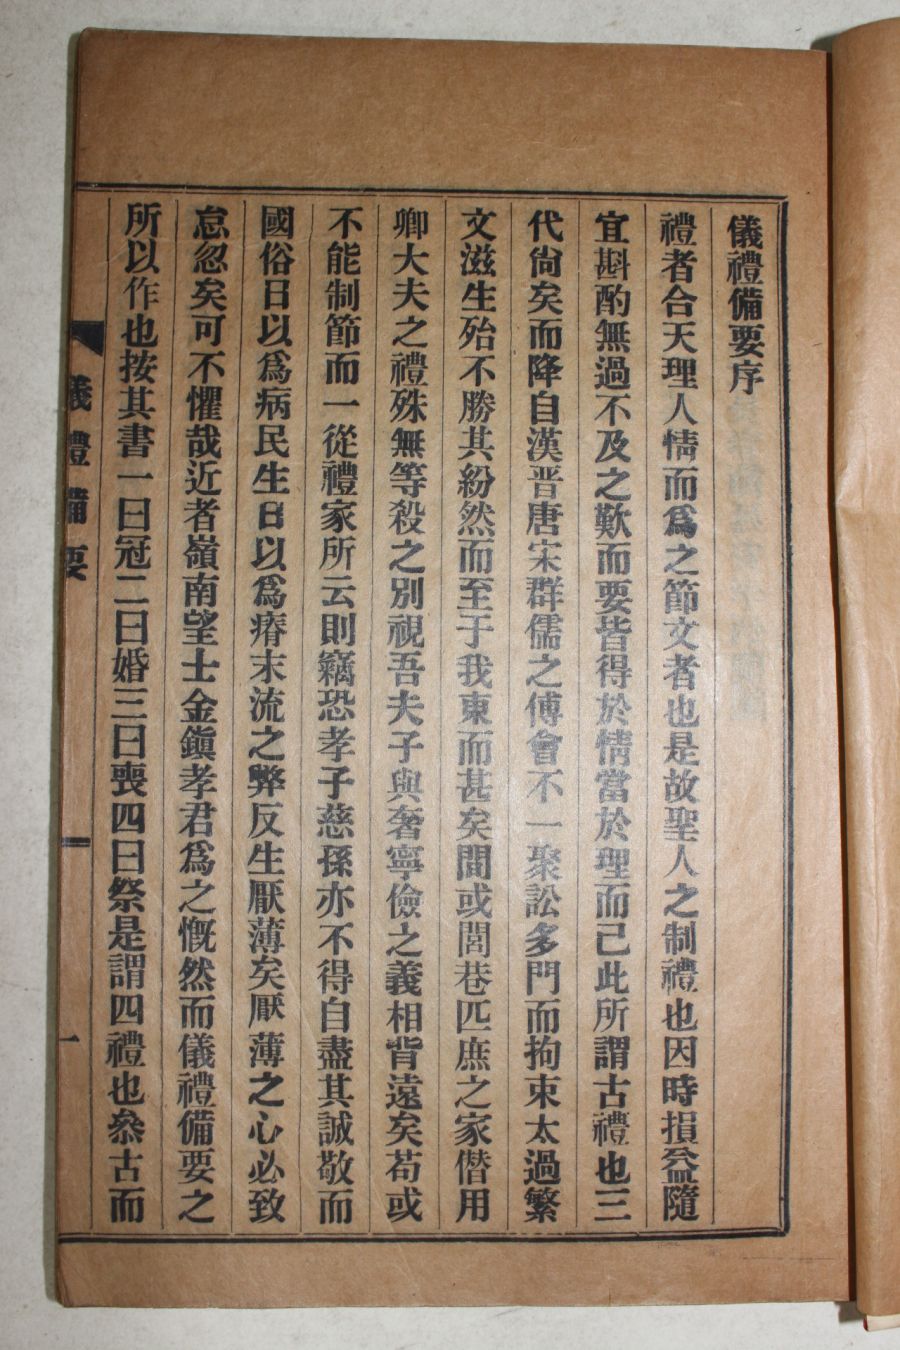 儀禮備要序
禮者合天理人情而爲之節文者也是故聖人之制禮也因時損益隨
宜斟酌無過不及之歎而要皆得於情當於理而已此所謂古禮也三
代尙矣而降自漢晋唐宋群儒之傅會不一聚訟多門而拘束太過繁
文滋生殆不勝其紛然而至于我東而甚矣間或閭巷匹庶之家僭用
卿大夫之禮殊無等殺之別視吾夫子與奢寧儉之義相背遠矣苟或
不能制節而一從禮家所云則竊恐孝子慈孫亦不得自盡其誠敬而
國俗日以爲病民生日以爲瘠末流之弊反生厭薄矣厭薄之心必致
怠忽矣可不懼哉近者嶺南望士金鎭孝君爲之慨然而儀禮備要之
所以作也按其書一曰冠二曰婚三曰喪四曰祭是謂四禮也叅古而
儀禮備要
一